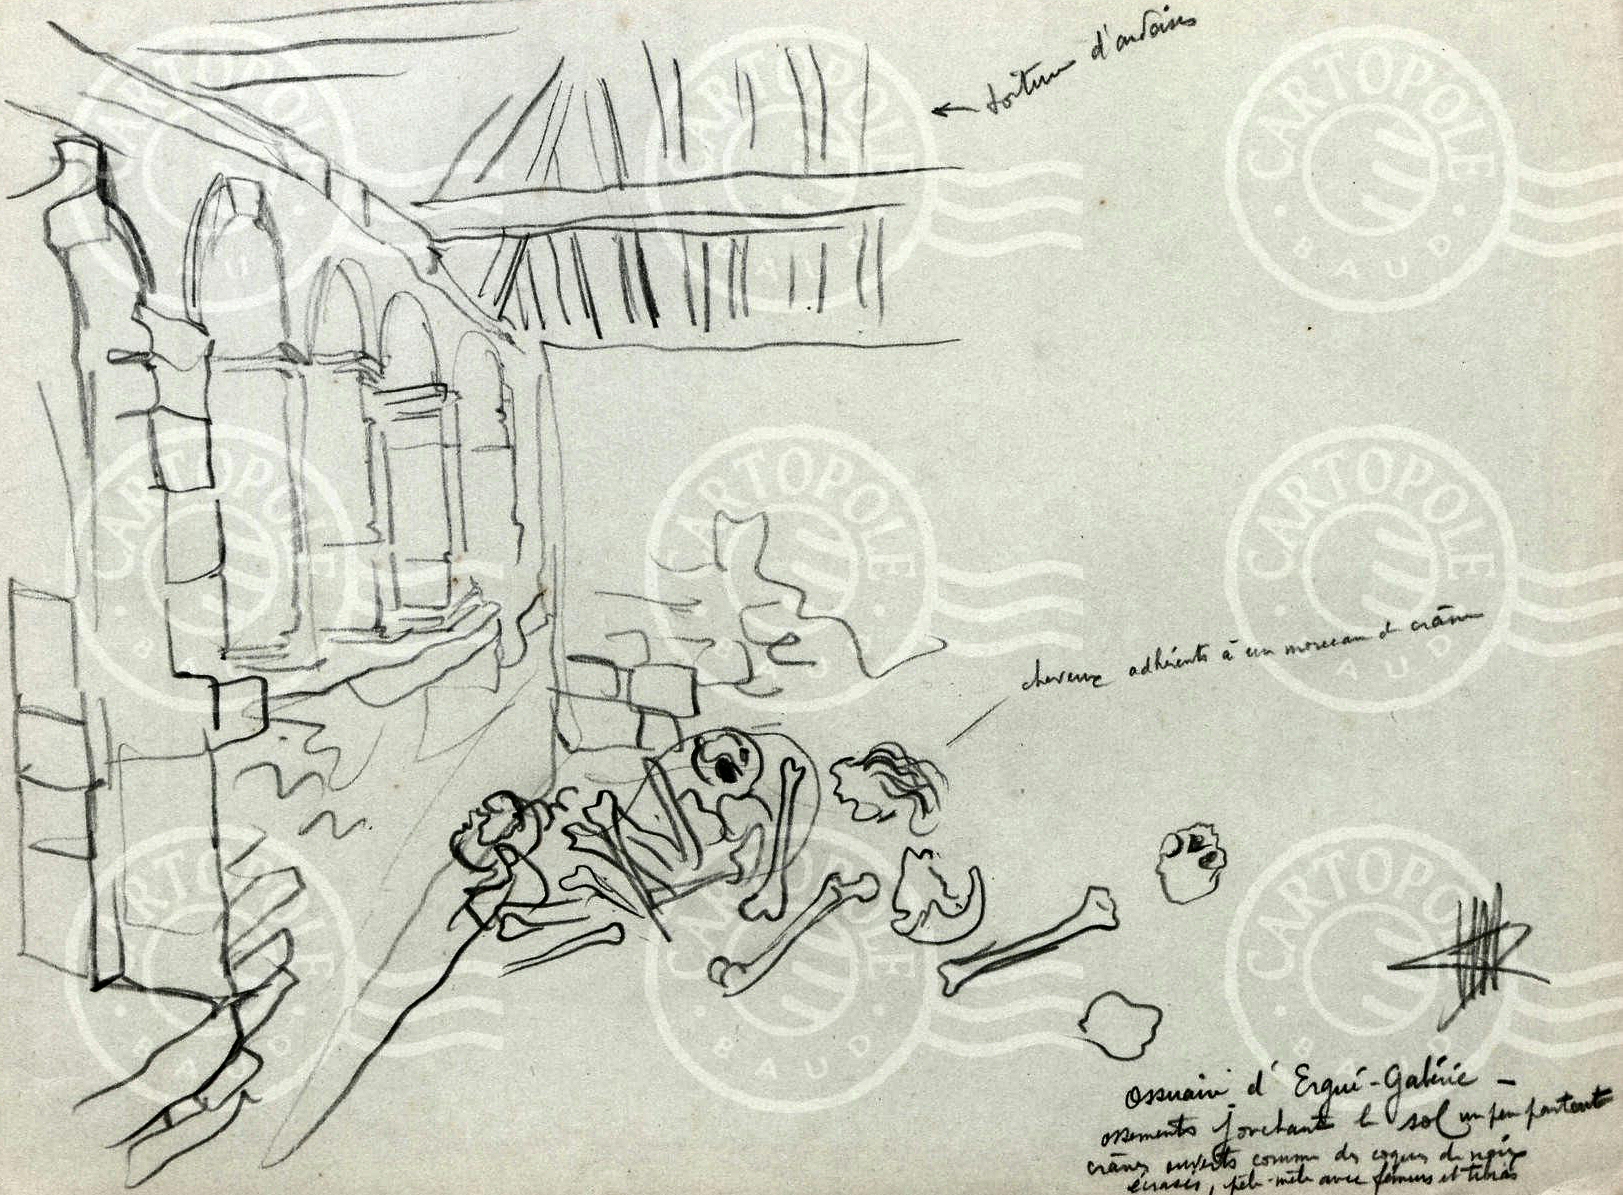 toiture d'ardoises
cheveux adhérents à un morceau de crâne
ossuaire d'Ergué-Gabéric –
ossements jonchant le sol un peu partout
crânes ouverts comme des coques de noix
écrasés, pêle-mêle avec fémurs et tibias
CARTOPOLE
BAUD
CARTOPOLE
BAUD
CARTOPOLE
BAUD
CARTOPOLE
BAUD
CARTOPOLE
BAUD
CARTOPOLE
BAUD
CARTOPOLE
BAUD
CARTOPOLE
BAUD
CARTOPOLE
BAUD